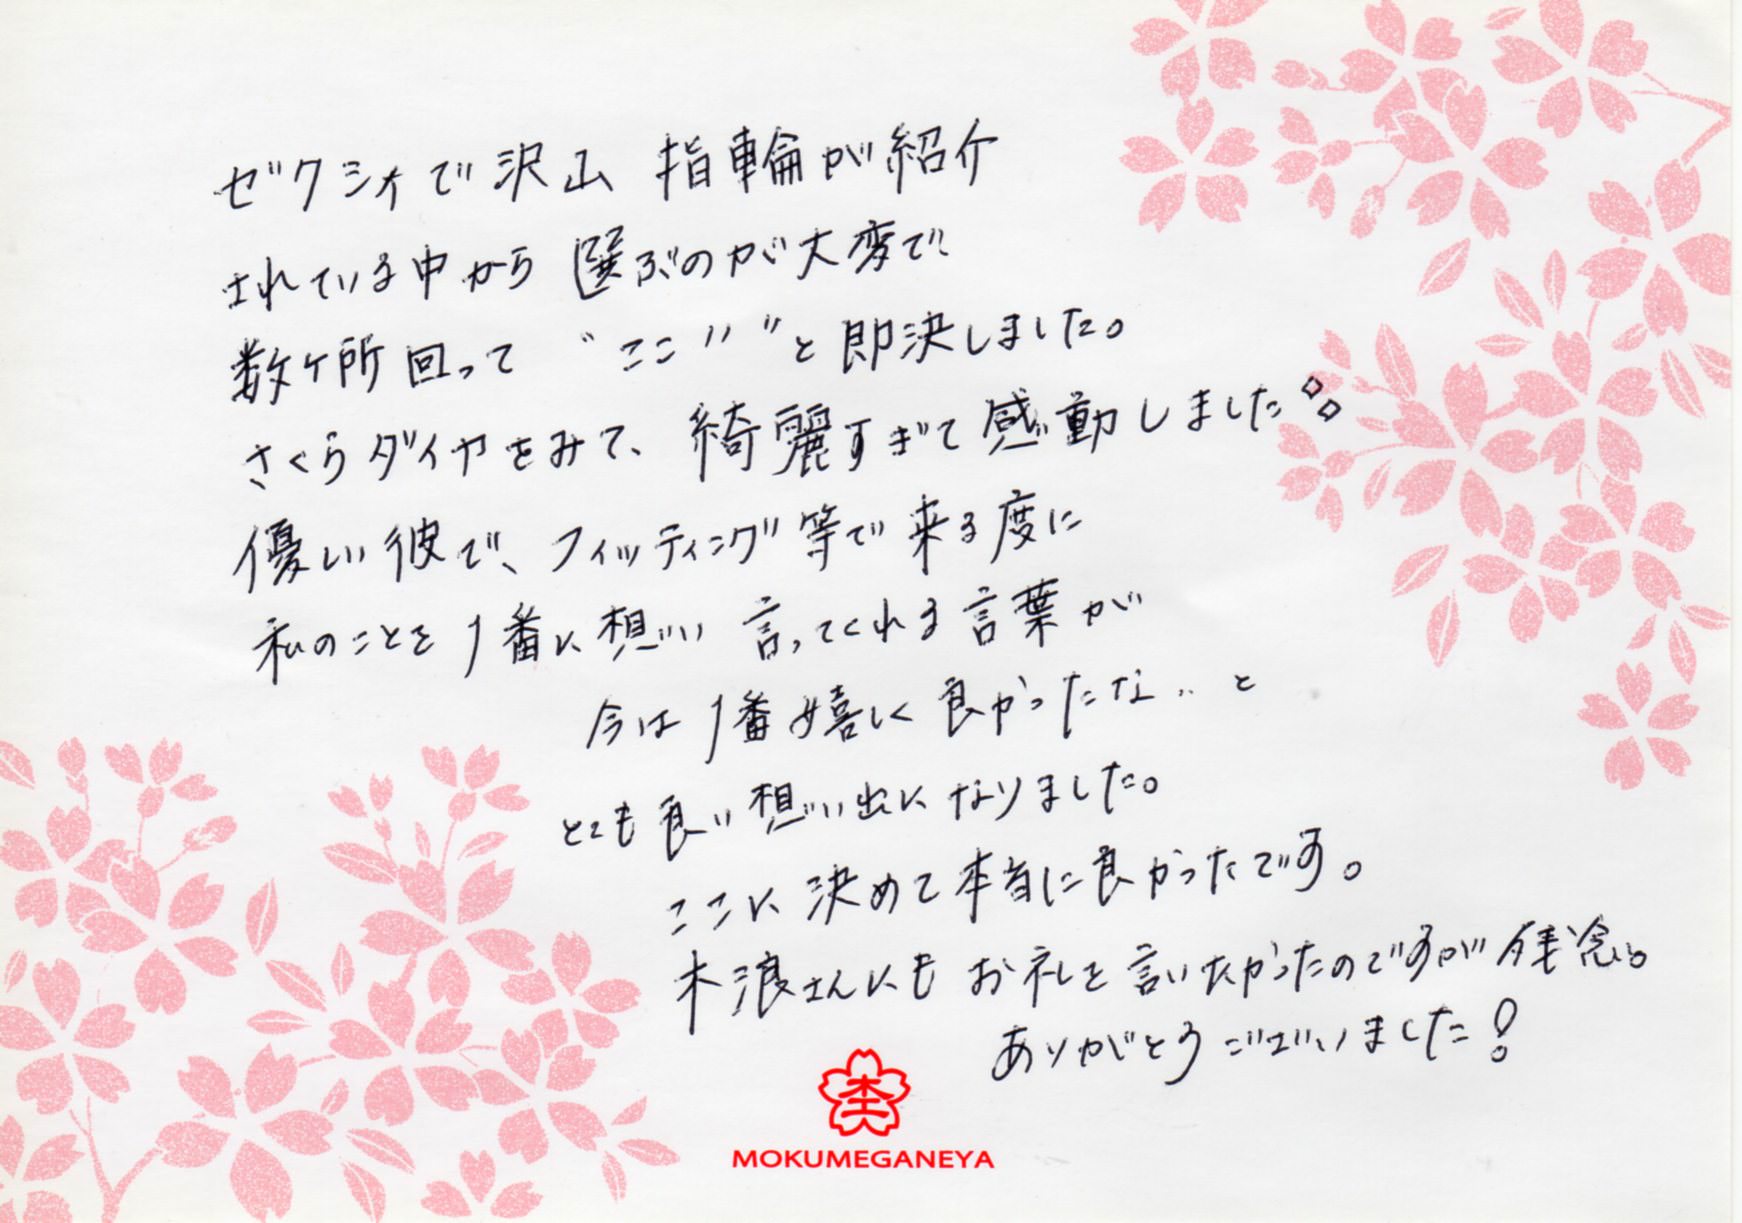 ゼクシィで沢山 指輪が紹介
されている中から 選ぶのが大変で
数ヶ所 回って “ここ!!” と即決しました。
さくらダイヤをみて、綺麗すぎて感動しました◇◇
優しい彼で、フィッティング等で来る度に
私のことを1番に想い 言ってくれる言葉が
今は1番嬉しく 良かったな‥と
とても良い想い出に なりました。
ここに 決めて本当に良かったです。
木浪さんにも お礼を言いたかったのですが 残念。
ありがとう ございました!
杢
MOKUMEGANEYA